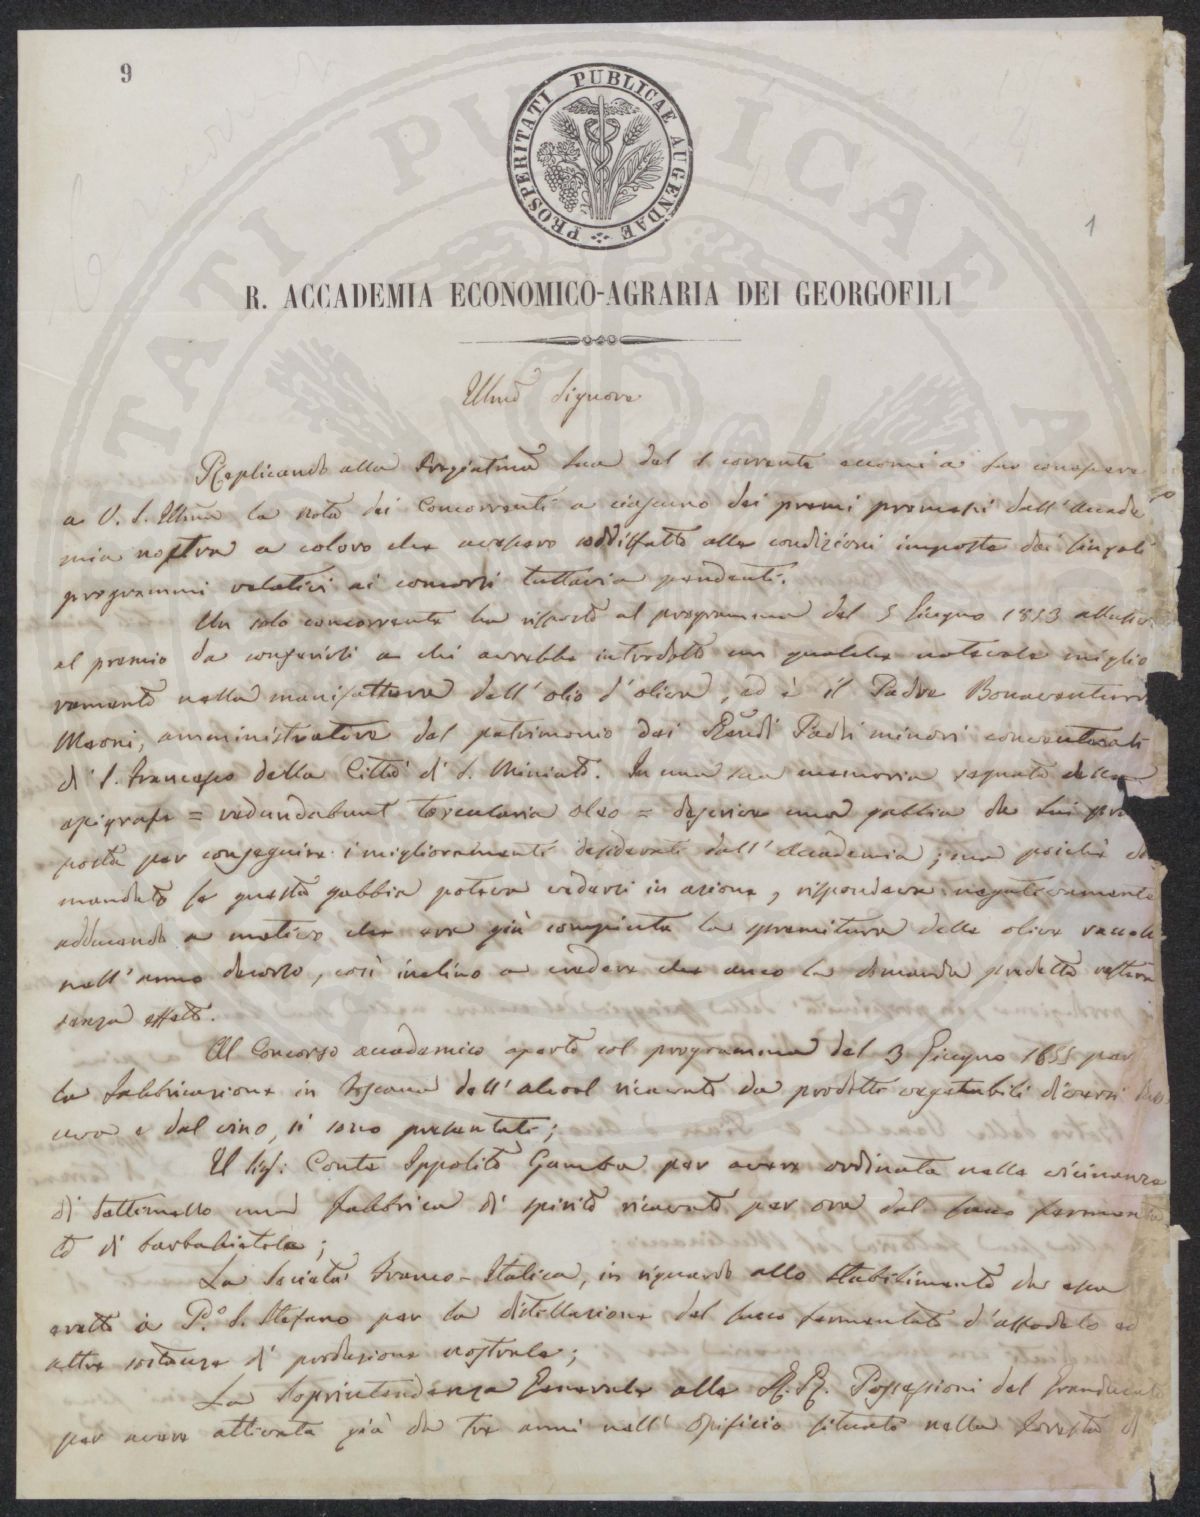 9
PROSPERITATI PUBLICAE AUGENDAE
1
R. ACCADEMIA ECONOMICO-AGRARIA DEI GEORGOFILI
Illmo Signore
Replicando alla pregiatma sua del 1 corrente eccomi a far conoscere
a V. S. Illma la nota dei Concorrenti a ciascuno dei premi promessi dall'Accade
mia nostra a coloro che avessero soddisfatto alle condizioni imposte dai singoli
programmi relativi ai concorsi tuttavia pendenti.
Un solo concorrente ha risposto al programma del 5 Giugno 1853
al premio da conferirsi a chi avrebbe introdotto un qualche notevole miglio
ramento nella manifattura dell'olio d'oliva, ed è il Padre Bonaventura
Meoni, amministratore del patrimonio dei Rendi Padri minori conventuali
di S. Francesco della Città di S. Miniato. In una sua memoria segnata della
epigrafe = redundabunt torcularia oleo = descrive una gabbia da lui pro
posta per conseguire i miglioramenti desiderati dall'Accademia; ma poichè do
mandato se questa gabbia poteva vedersi in azione, rispondeva negativamente
adducendo a motivo che era già compiuta la spremitura delle olive raccolte
nell'anno decorso, così inclino a credere che anco la domanda predetta resterà
senza effetto.
Al Concorso accademico aperto col programma del 3 Giugno 1855 per
la fabbricazione in Toscana dell'alcool ricavato da prodotti vegetabili diversi dall'
uva e dal vino, si sono presentati;
Il Sig: Conte Ippolito Gamba per avere ordinata nelle vicinanze
di Settimello una fabbrica di spirito ricavato per ora dal succo fermenta
to di barbabietole;
La Società Franco-Italica, in riguardo allo stabilimento da essa
eretto a P.º S. Stefano per la distillazione del succo fermentato d'asfodelo ed
altre sostanze di produzione nostrale;
La Soprintendenza Generale alle RR. Possessioni del Granducato
per avere attivata già da tre anni nell'Opificio situato nella foresta di